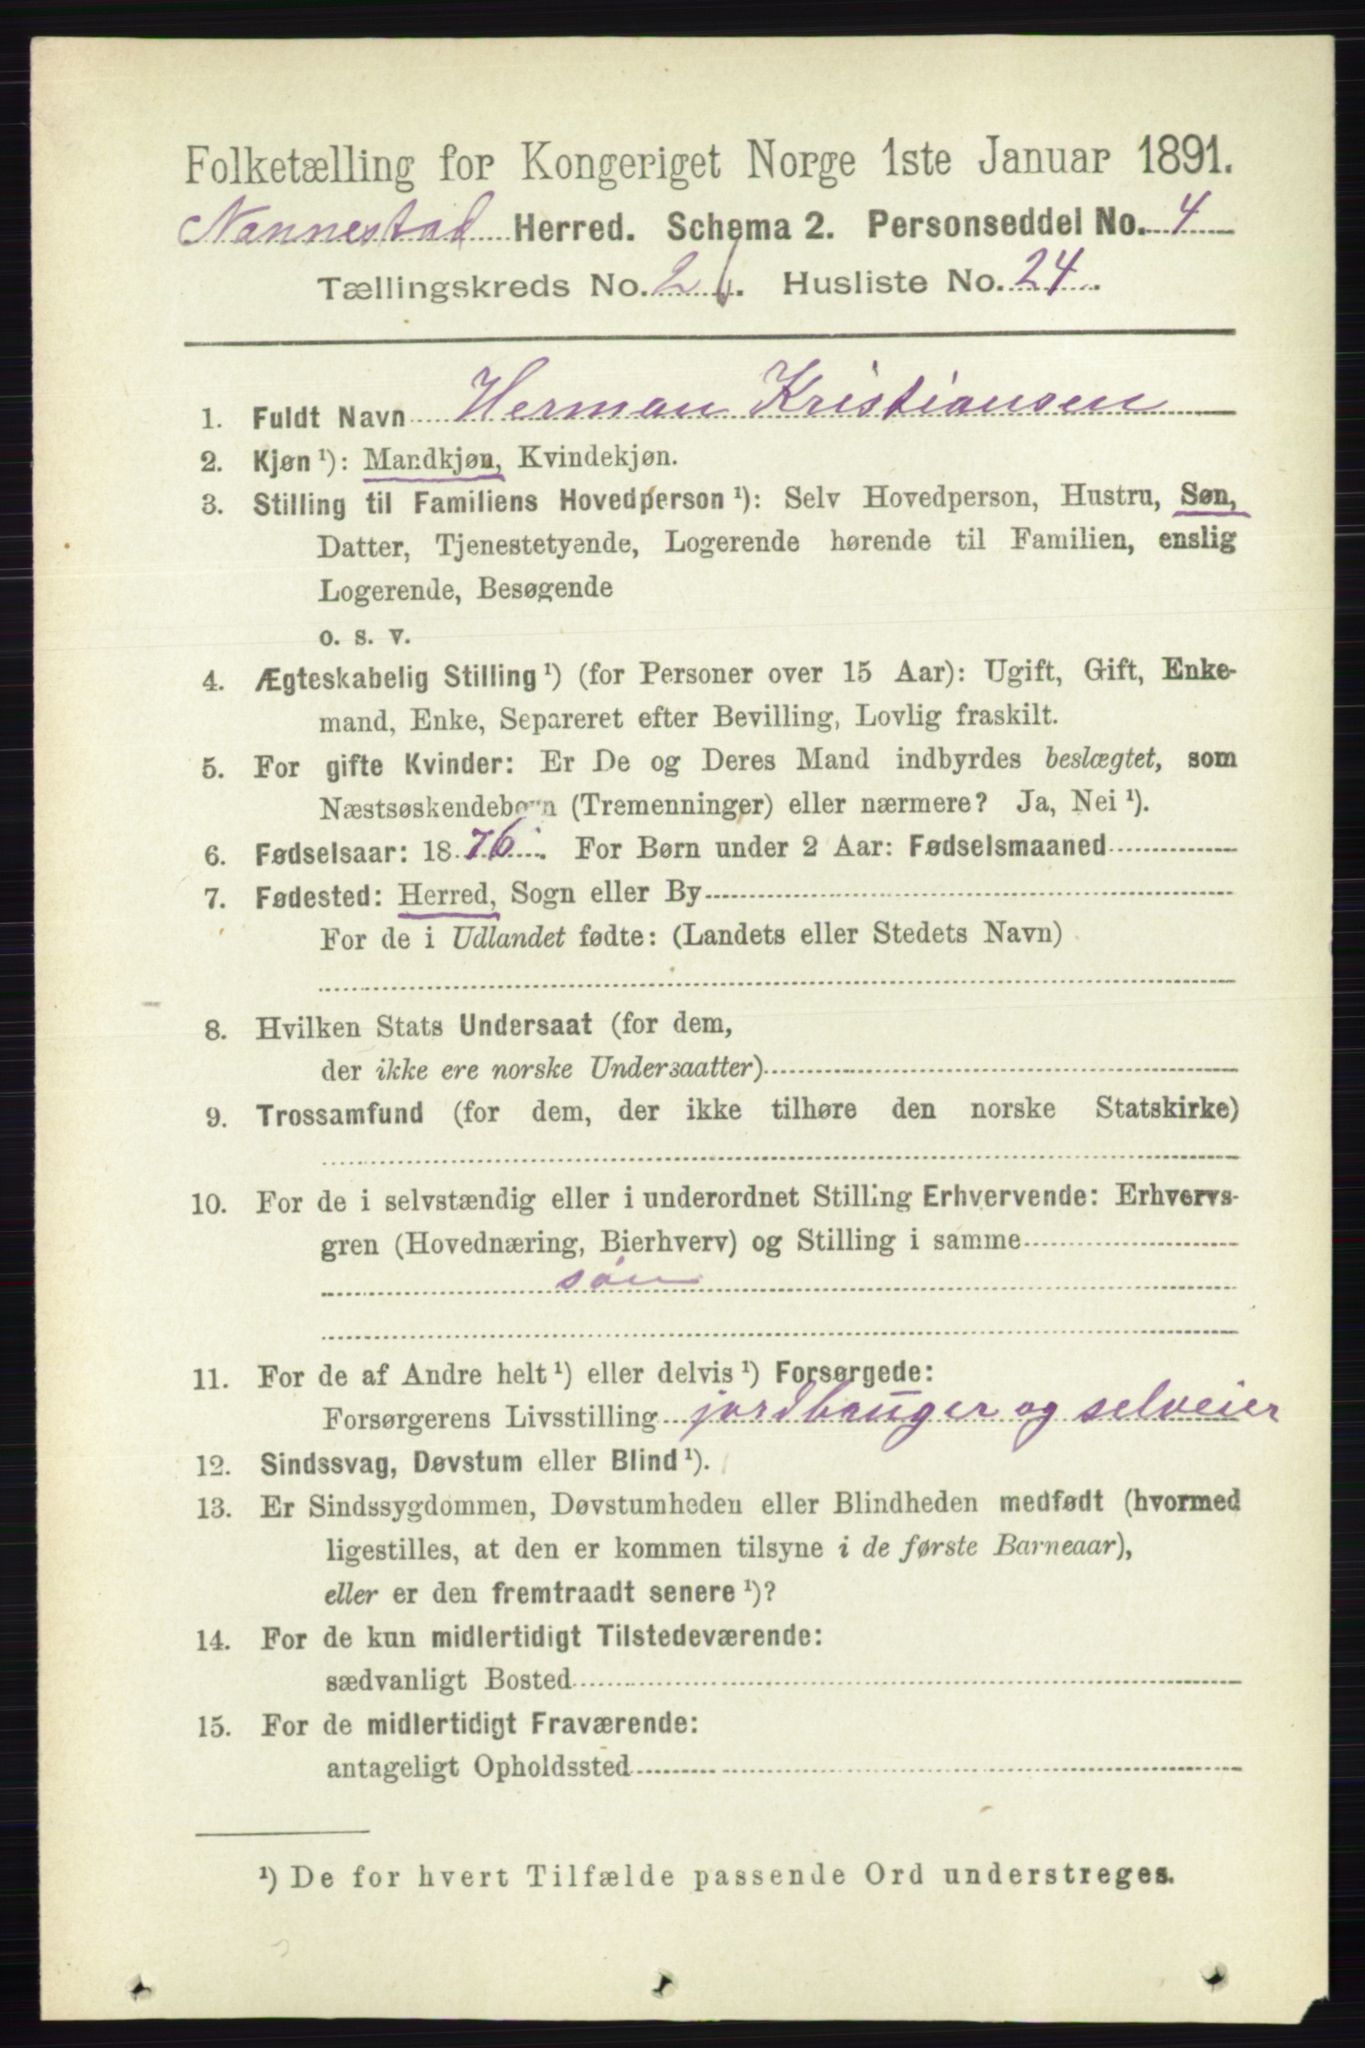 Folketælling for Kongeriget Norge 1ste Januar 1891.
Nannestad Herred. Schema 2. Personseddel No. 4
Tællingskreds No. 2. Husliste No. 24.
1. Fuldt Navn Herman Kristiansen
2. Kjøn ¹): Mandkjøn, Kvindekjøn.
3. Stilling til Familiens Hovedperson ¹): Selv Hovedperson, Hustru, Søn,
Datter, Tjenestetyende, Logerende hørende til Familien, enslig
Logerende, Besøgende
o. s. v.
4. Ægteskabelig Stilling ¹) (for Personer over 15 Aar): Ugift, Gift, Enke-
mand, Enke, Separeret efter Bevilling, Lovlig fraskilt.
5. For gifte Kvinder: Er De og Deres Mand indbyrdes beslægtet, som
Næstsøskendebørn (Tremenninger) eller nærmere? Ja, Nei ¹).
6. Fødselsaar: 1876. For Børn under 2 Aar: Fødselsmaaned
7. Fødested: Herred, Sogn eller By
For de i Udlandet fødte: (Landets eller Stedets Navn)
8. Hvilken Stats Undersaat (for dem,
der ikke ere norske Undersaatter)
9. Trossamfund (for dem, der ikke tilhøre den norske Statskirke)
10. For de i selvstændig eller i underordnet Stilling Erhvervende: Erhvervs-
gren (Hovednæring, Bierhverv) og Stilling i samme
søn
11. For de af Andre helt ¹) eller delvis ¹) Forsørgede:
Forsørgerens Livsstilling jordbruger og selveier
12. Sindssvag, Døvstum eller Blind ¹).
13. Er Sindssygdommen, Døvstumheden eller Blindheden medfødt (hvormed
ligestilles, at den er kommen tilsyne i de første Barneaar),
eller er den fremtraadt senere ¹)?
14. For de kun midlertidigt Tilstedeværende:
sædvanligt Bosted
15. For de midlertidigt Fraværende:
antageligt Opholdssted
¹) De for hvert Tilfælde passende Ord understreges.